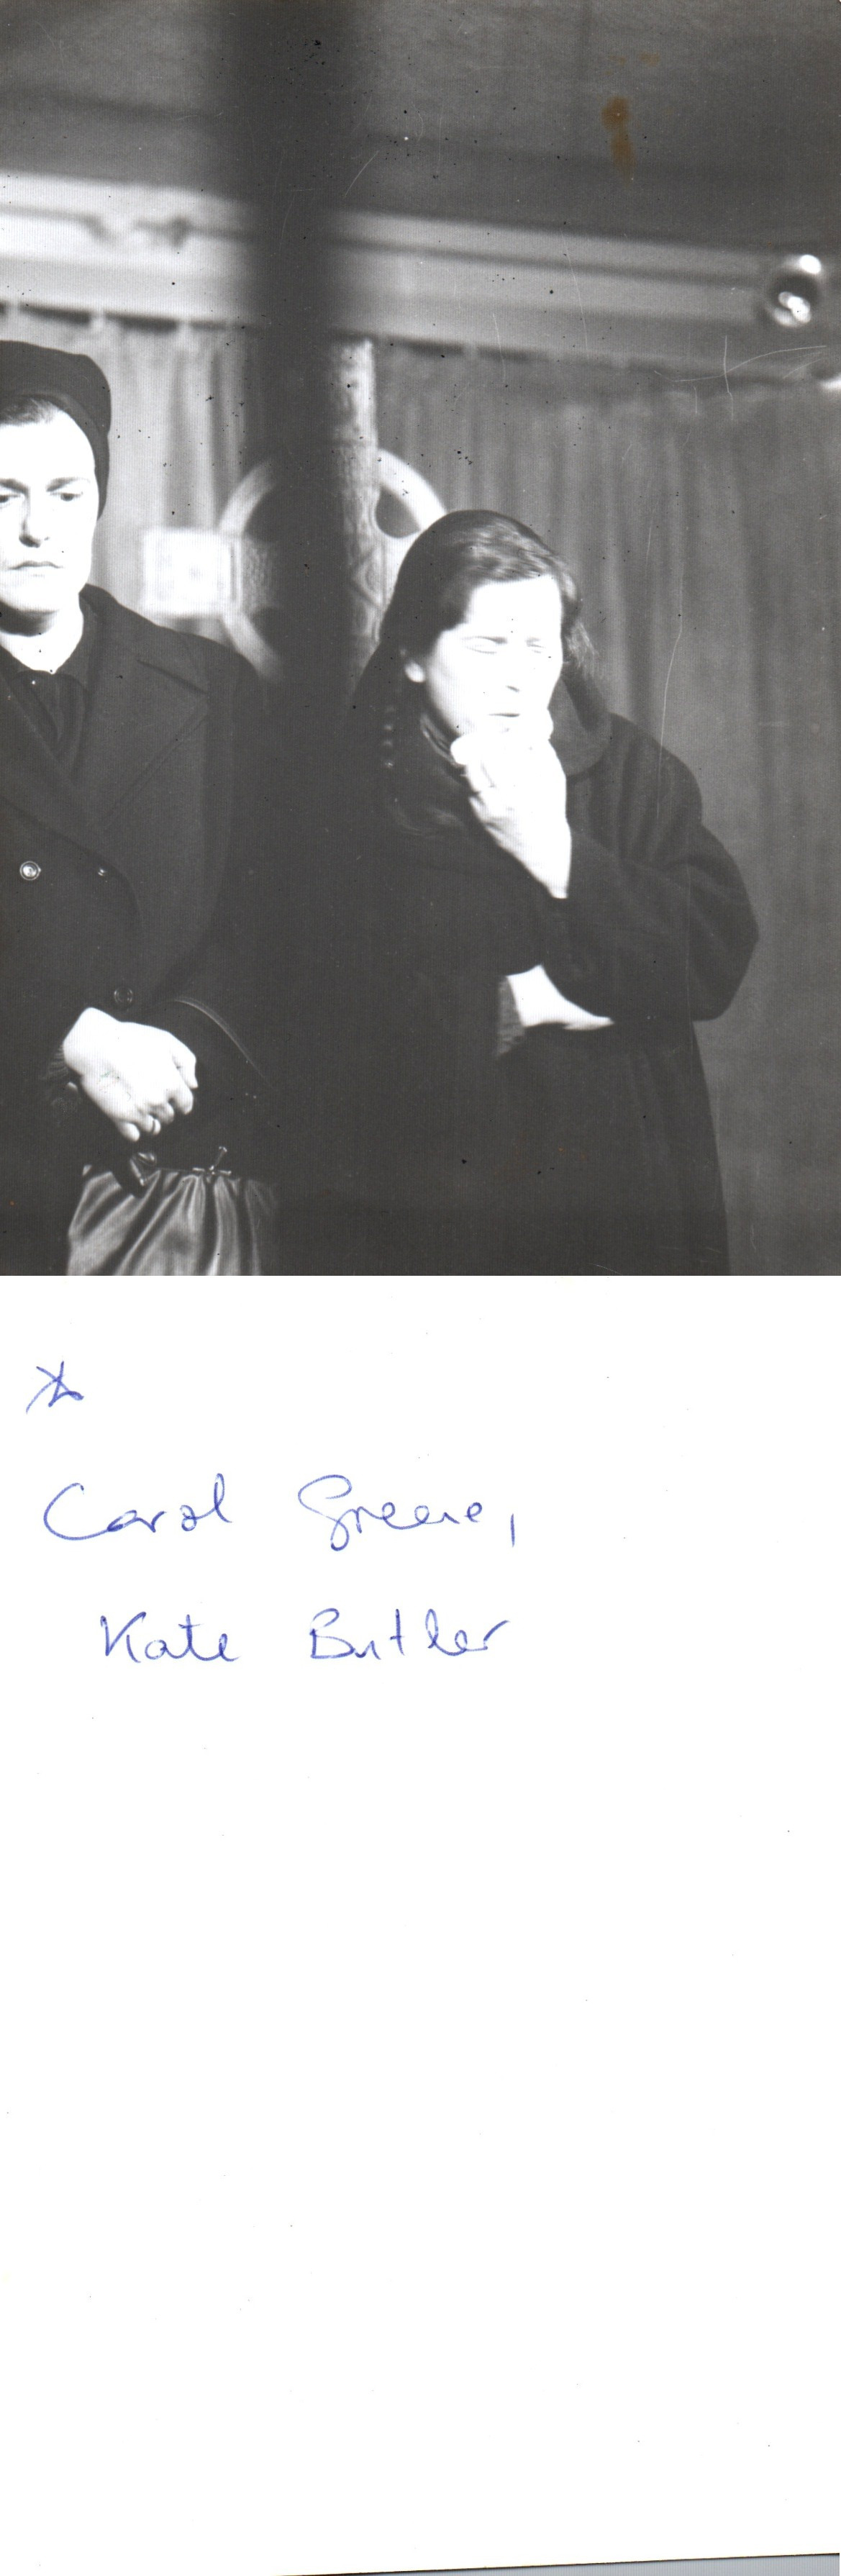 Carol Greene,
Kate Butler